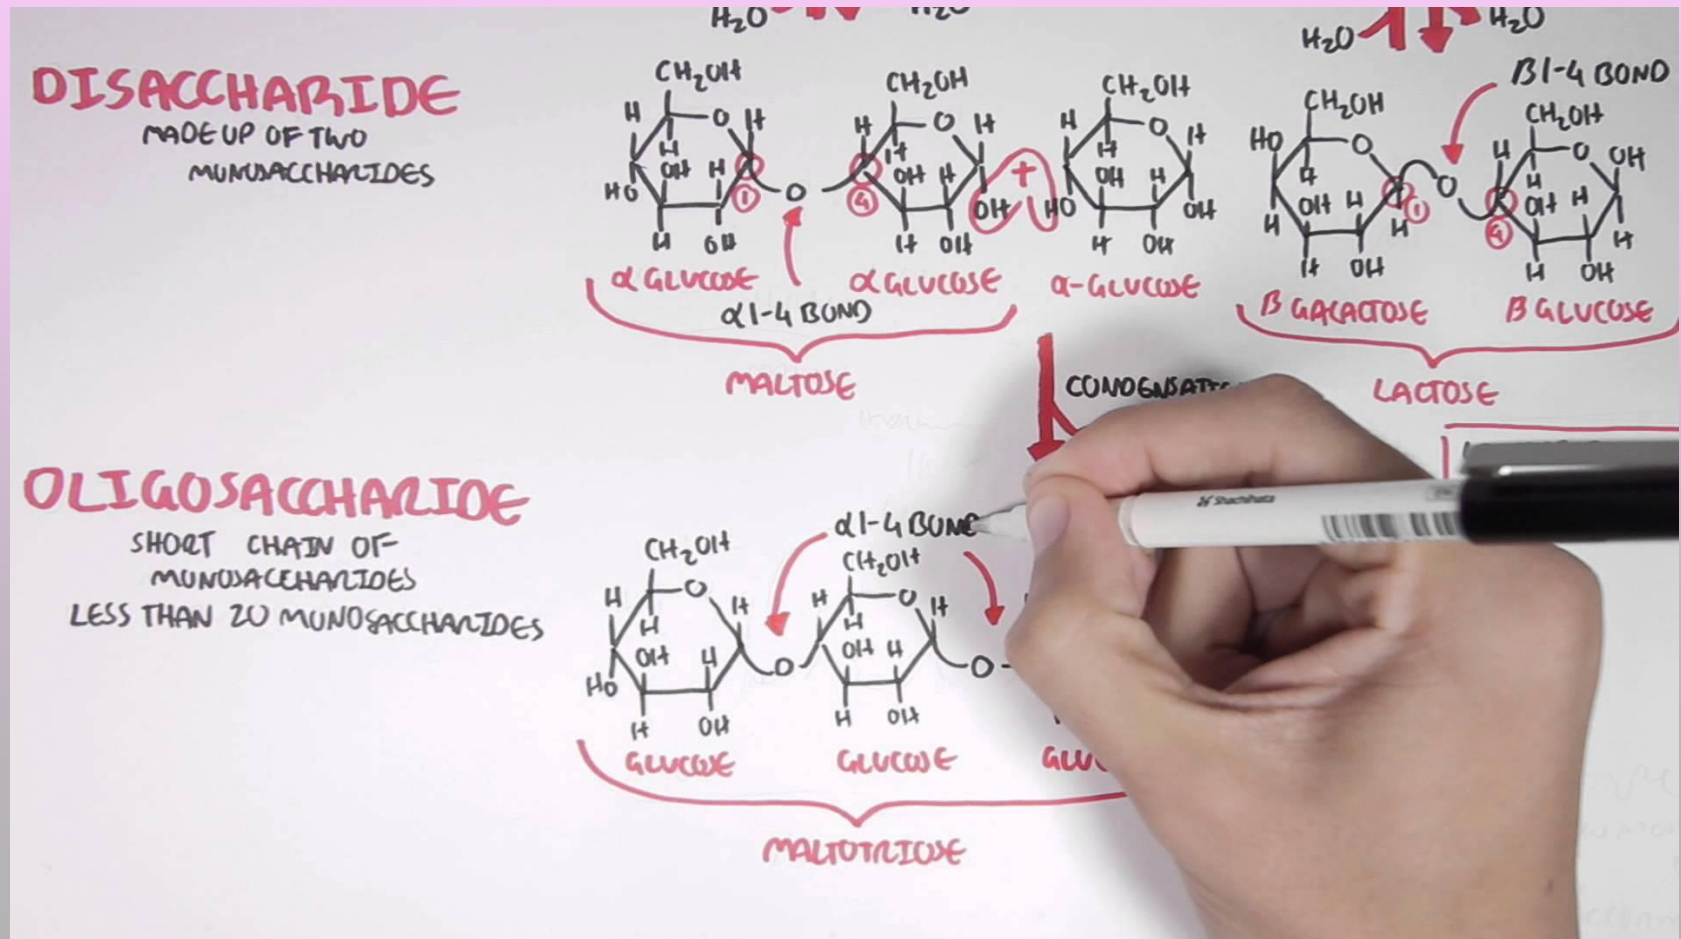 H₂O H₂O
H₂O H₂O
DISACCHARIDE
MADE UP OF TWO
MONOSACCHARIDES
CH₂OH
H O H
H
OH H
HO
H OH
1
O
CH₂OH
H O H
H
OH H
OH
H OH
4
+
CH₂OH
H O H
H
OH H
HO OH
H OH
α GLUCOSE
α GLUCOSE
α-GLUCOSE
α1-4 BOND
MALTOSE
β1-4 BOND
CH₂OH
HO O
H
OH H
H H
H OH
1
O
CH₂OH
H O OH
H
OH H
H
H OH
4
β GALACTOSE
β GLUCOSE
LACTOSE
OLIGOSACCHARIDE
SHORT CHAIN OF
MONOSACCHARIDES
LESS THAN 20 MONOSACCHARIDES
α1-4 BOND
CH₂OH
H O H
H
OH H
HO
H OH
O
CH₂OH
H O H
H
OH H
H OH
O
GLUCOSE
GLUCOSE
MALTOTRIOSE
Shachihata